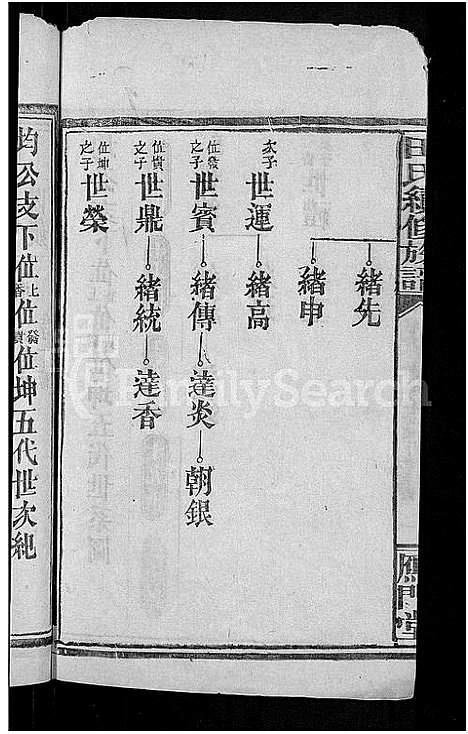 田氏續修族譜
雁門堂
緒先
緒申
次子 世運 緒高
位發之子 世賓 緒傳 達炎 朝銀
位貴之子 世鼎 緒統 達香
位坤之子 世榮
均公支下位上香位發貴位坤五代世次紀
FamilySearch